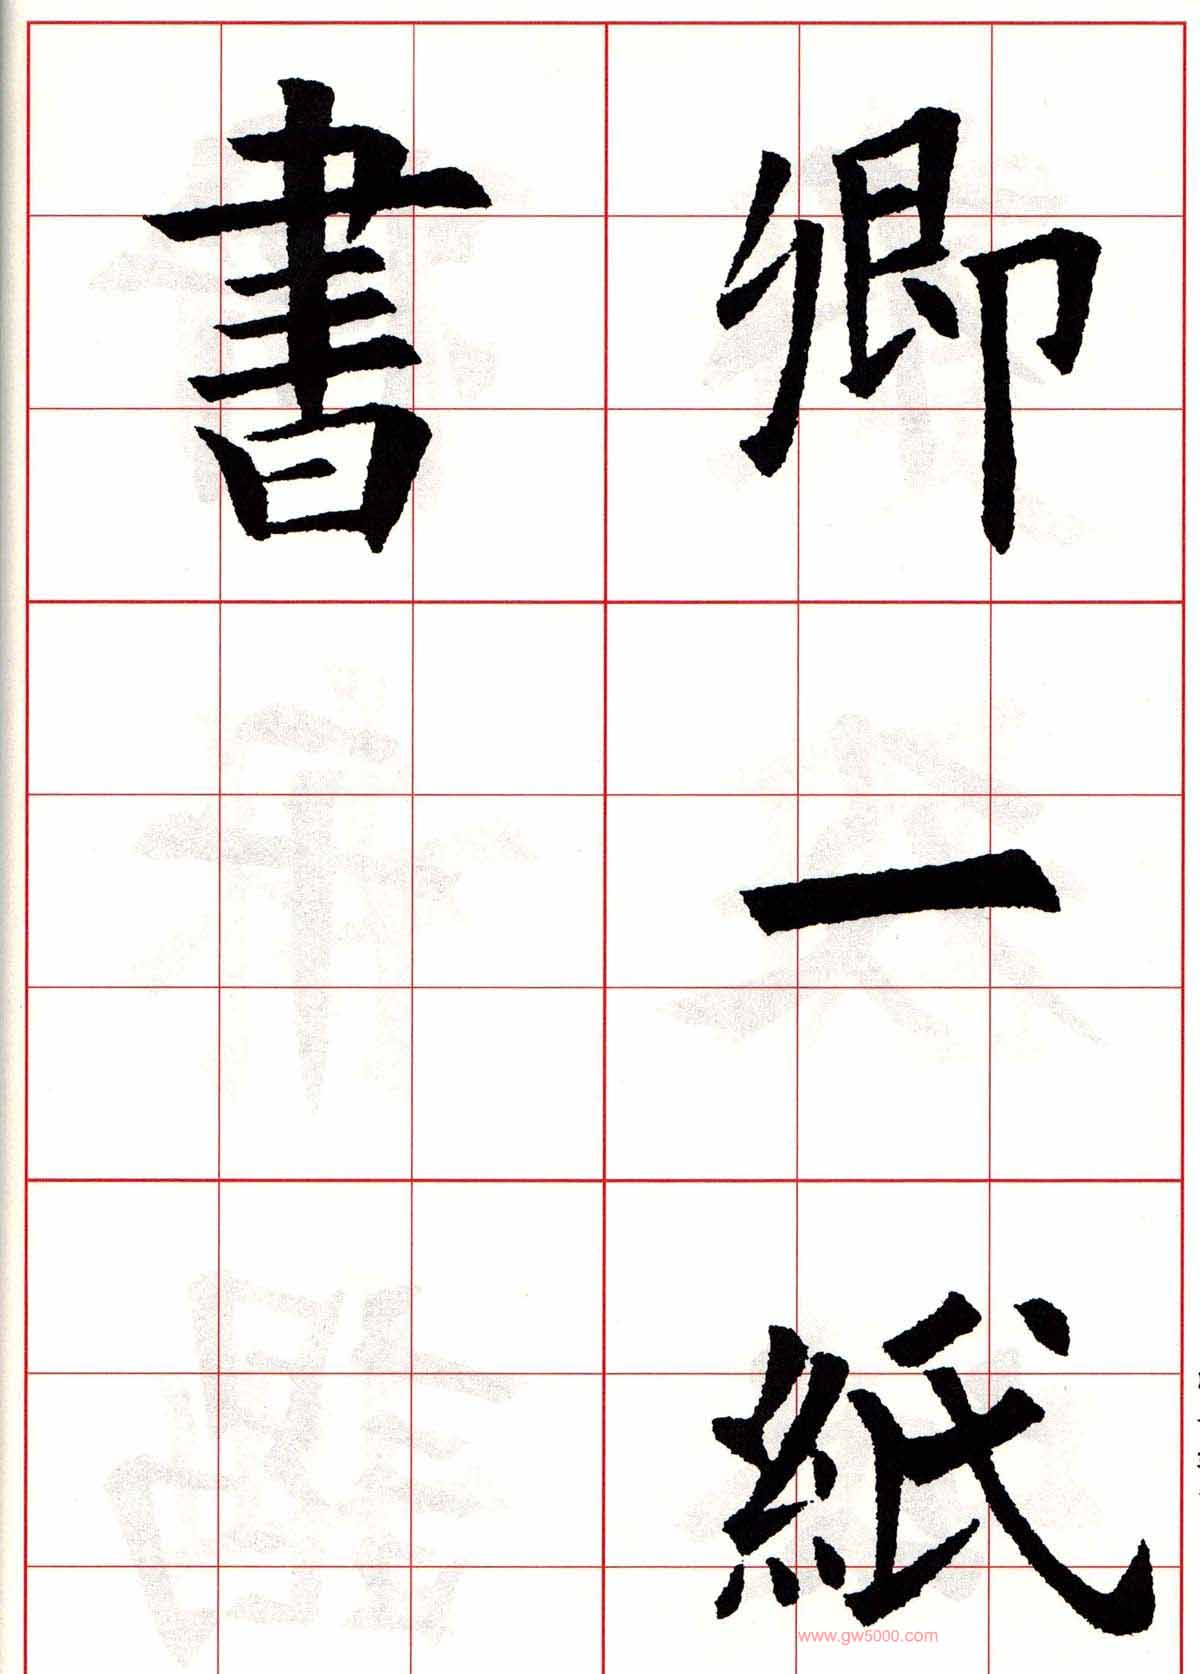 卿一紙
書
www.gw5000.com